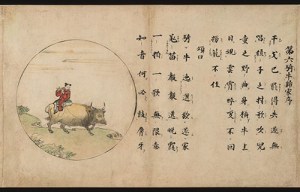 第六騎牛歸家序
干戈已罷得失還無
唱樵子之村歌吹兒
童之野曲身橫牛上
目視雲霄呼喚不回
撈籠不住
頌曰
騎牛迤邐欲還家
羌笛聲聲送晚霞
一拍一歌無限意
知音何必鼓唇牙